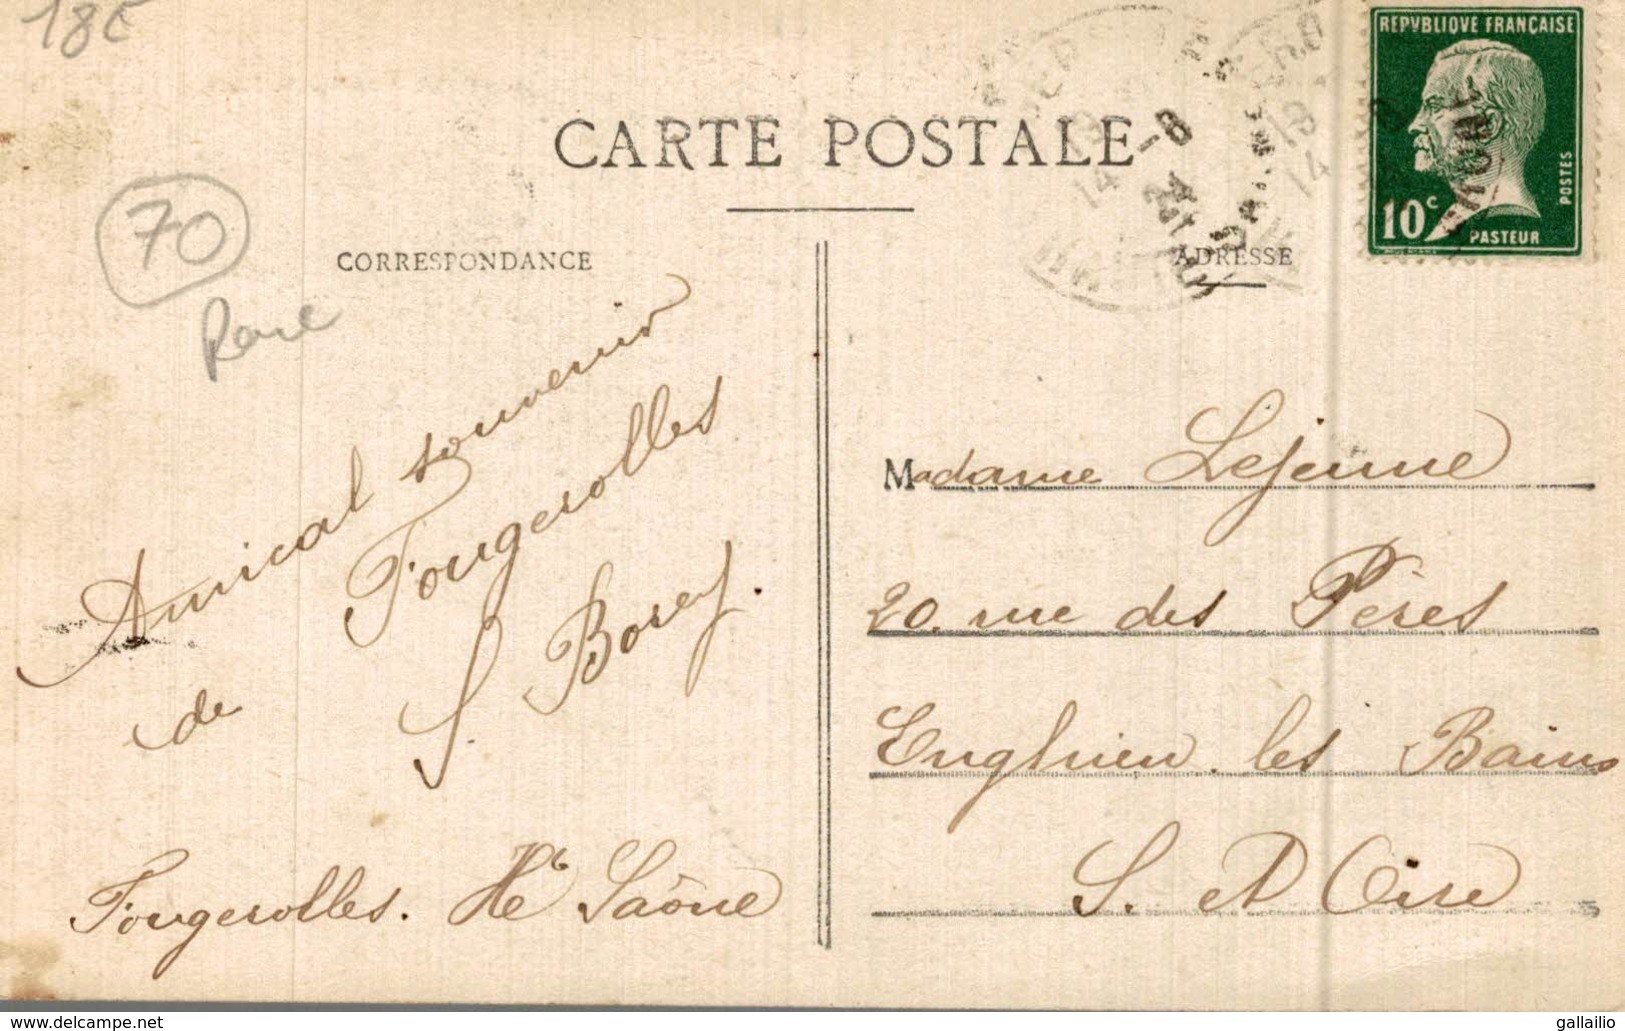 18E
REPVBLIQVE FRANÇAISE
10c
POSTES
PASTEUR
CARTE POSTALE
70
Rare
CORRESPONDANCE
ADRESSE
Amical souvenir
de Fougerolles
S.
Fougerolles. Hte Saône
Madame Lejeune
20. rue des Pères
Enghien. les Bains
S. et Oise
www.delcampe.net
gallailio